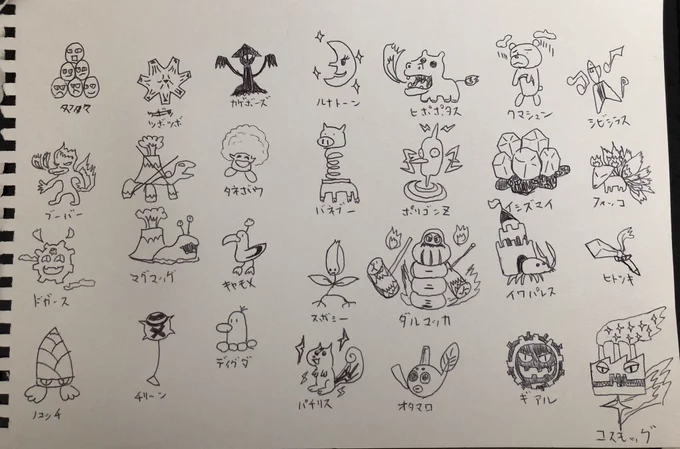 タマタマ
ツボツボ
カゲボーズ
ルナトーン
ヒポポタス
クマシュン
シビシラス
ブーバー
タネボー
バネブー
ポリゴンZ
イシズマイ
フォッコ
ドガース
マグマッグ
キャモメ
スボミー
ダルマッカ
イワパレス
ヒトツキ
ノコッチ
チリーン
ディグダ
パチリス
オタマロ
ギアル
コスモッグ